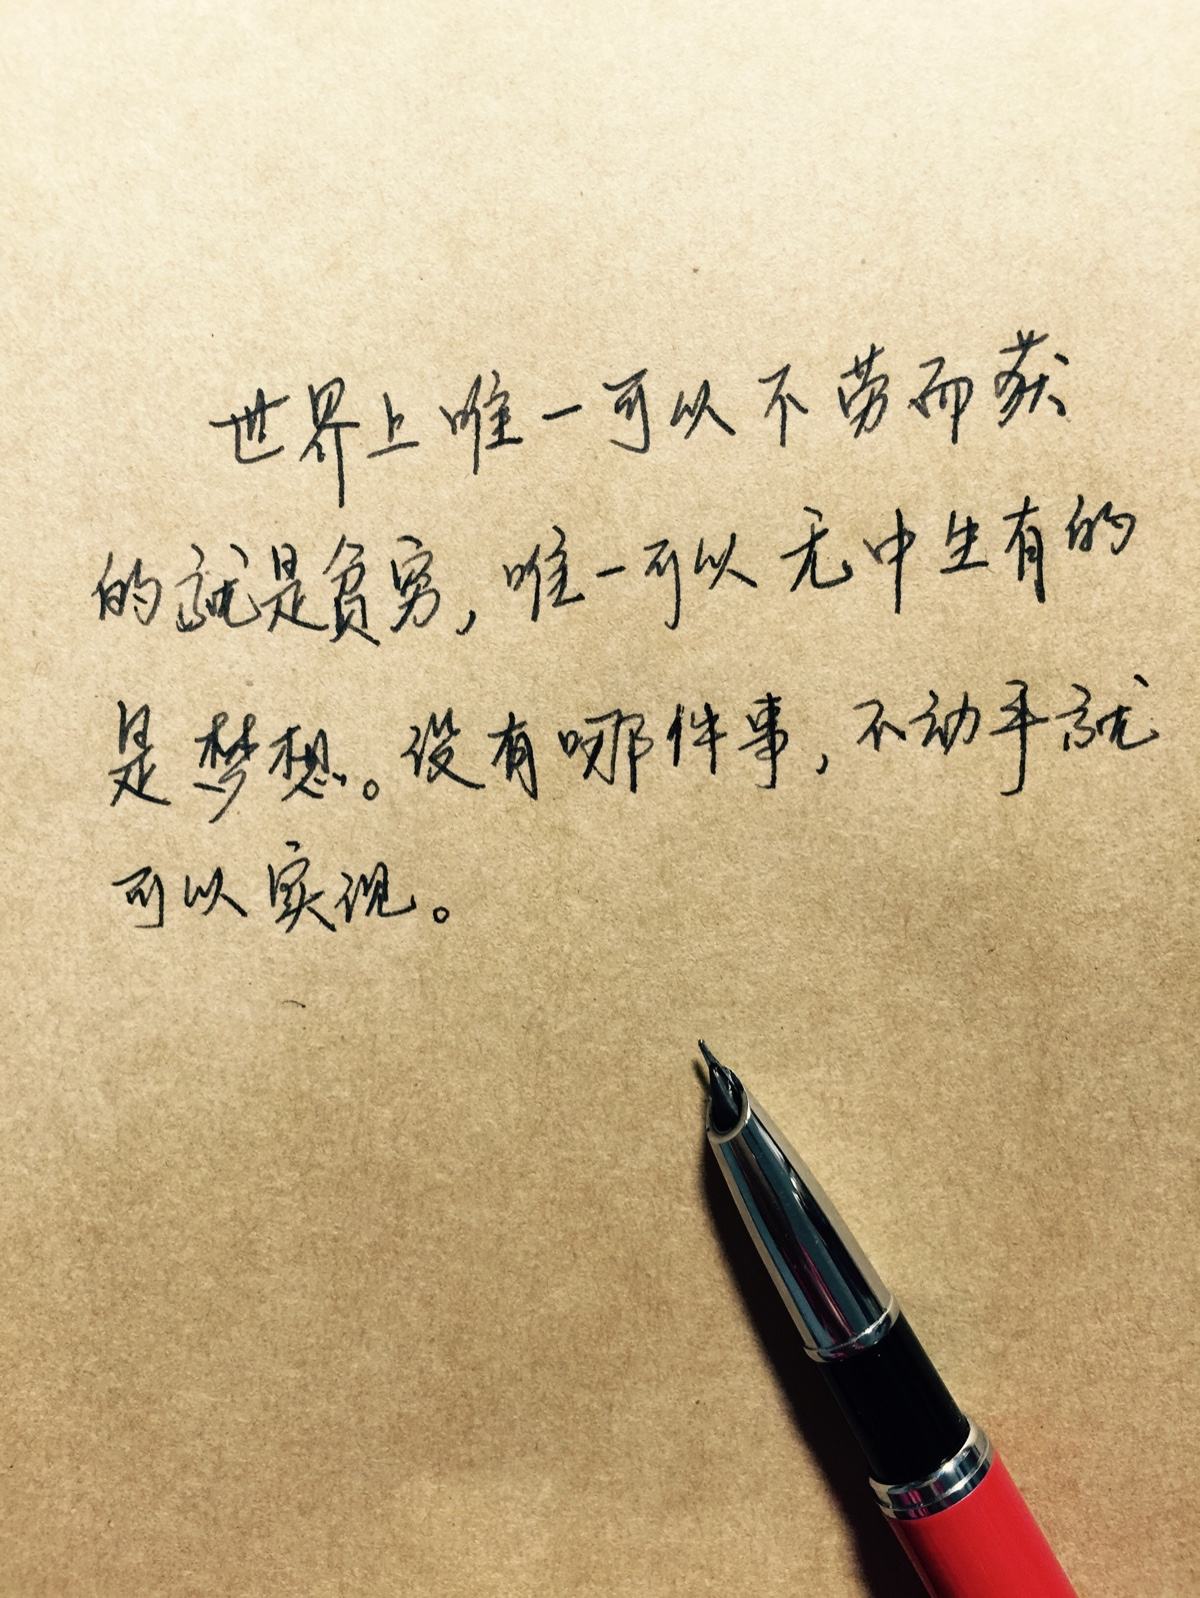 世界上唯一可以不劳而获
的就是贫穷，唯一可以无中生有的
是梦想。没有哪件事，不动手就
可以实现。